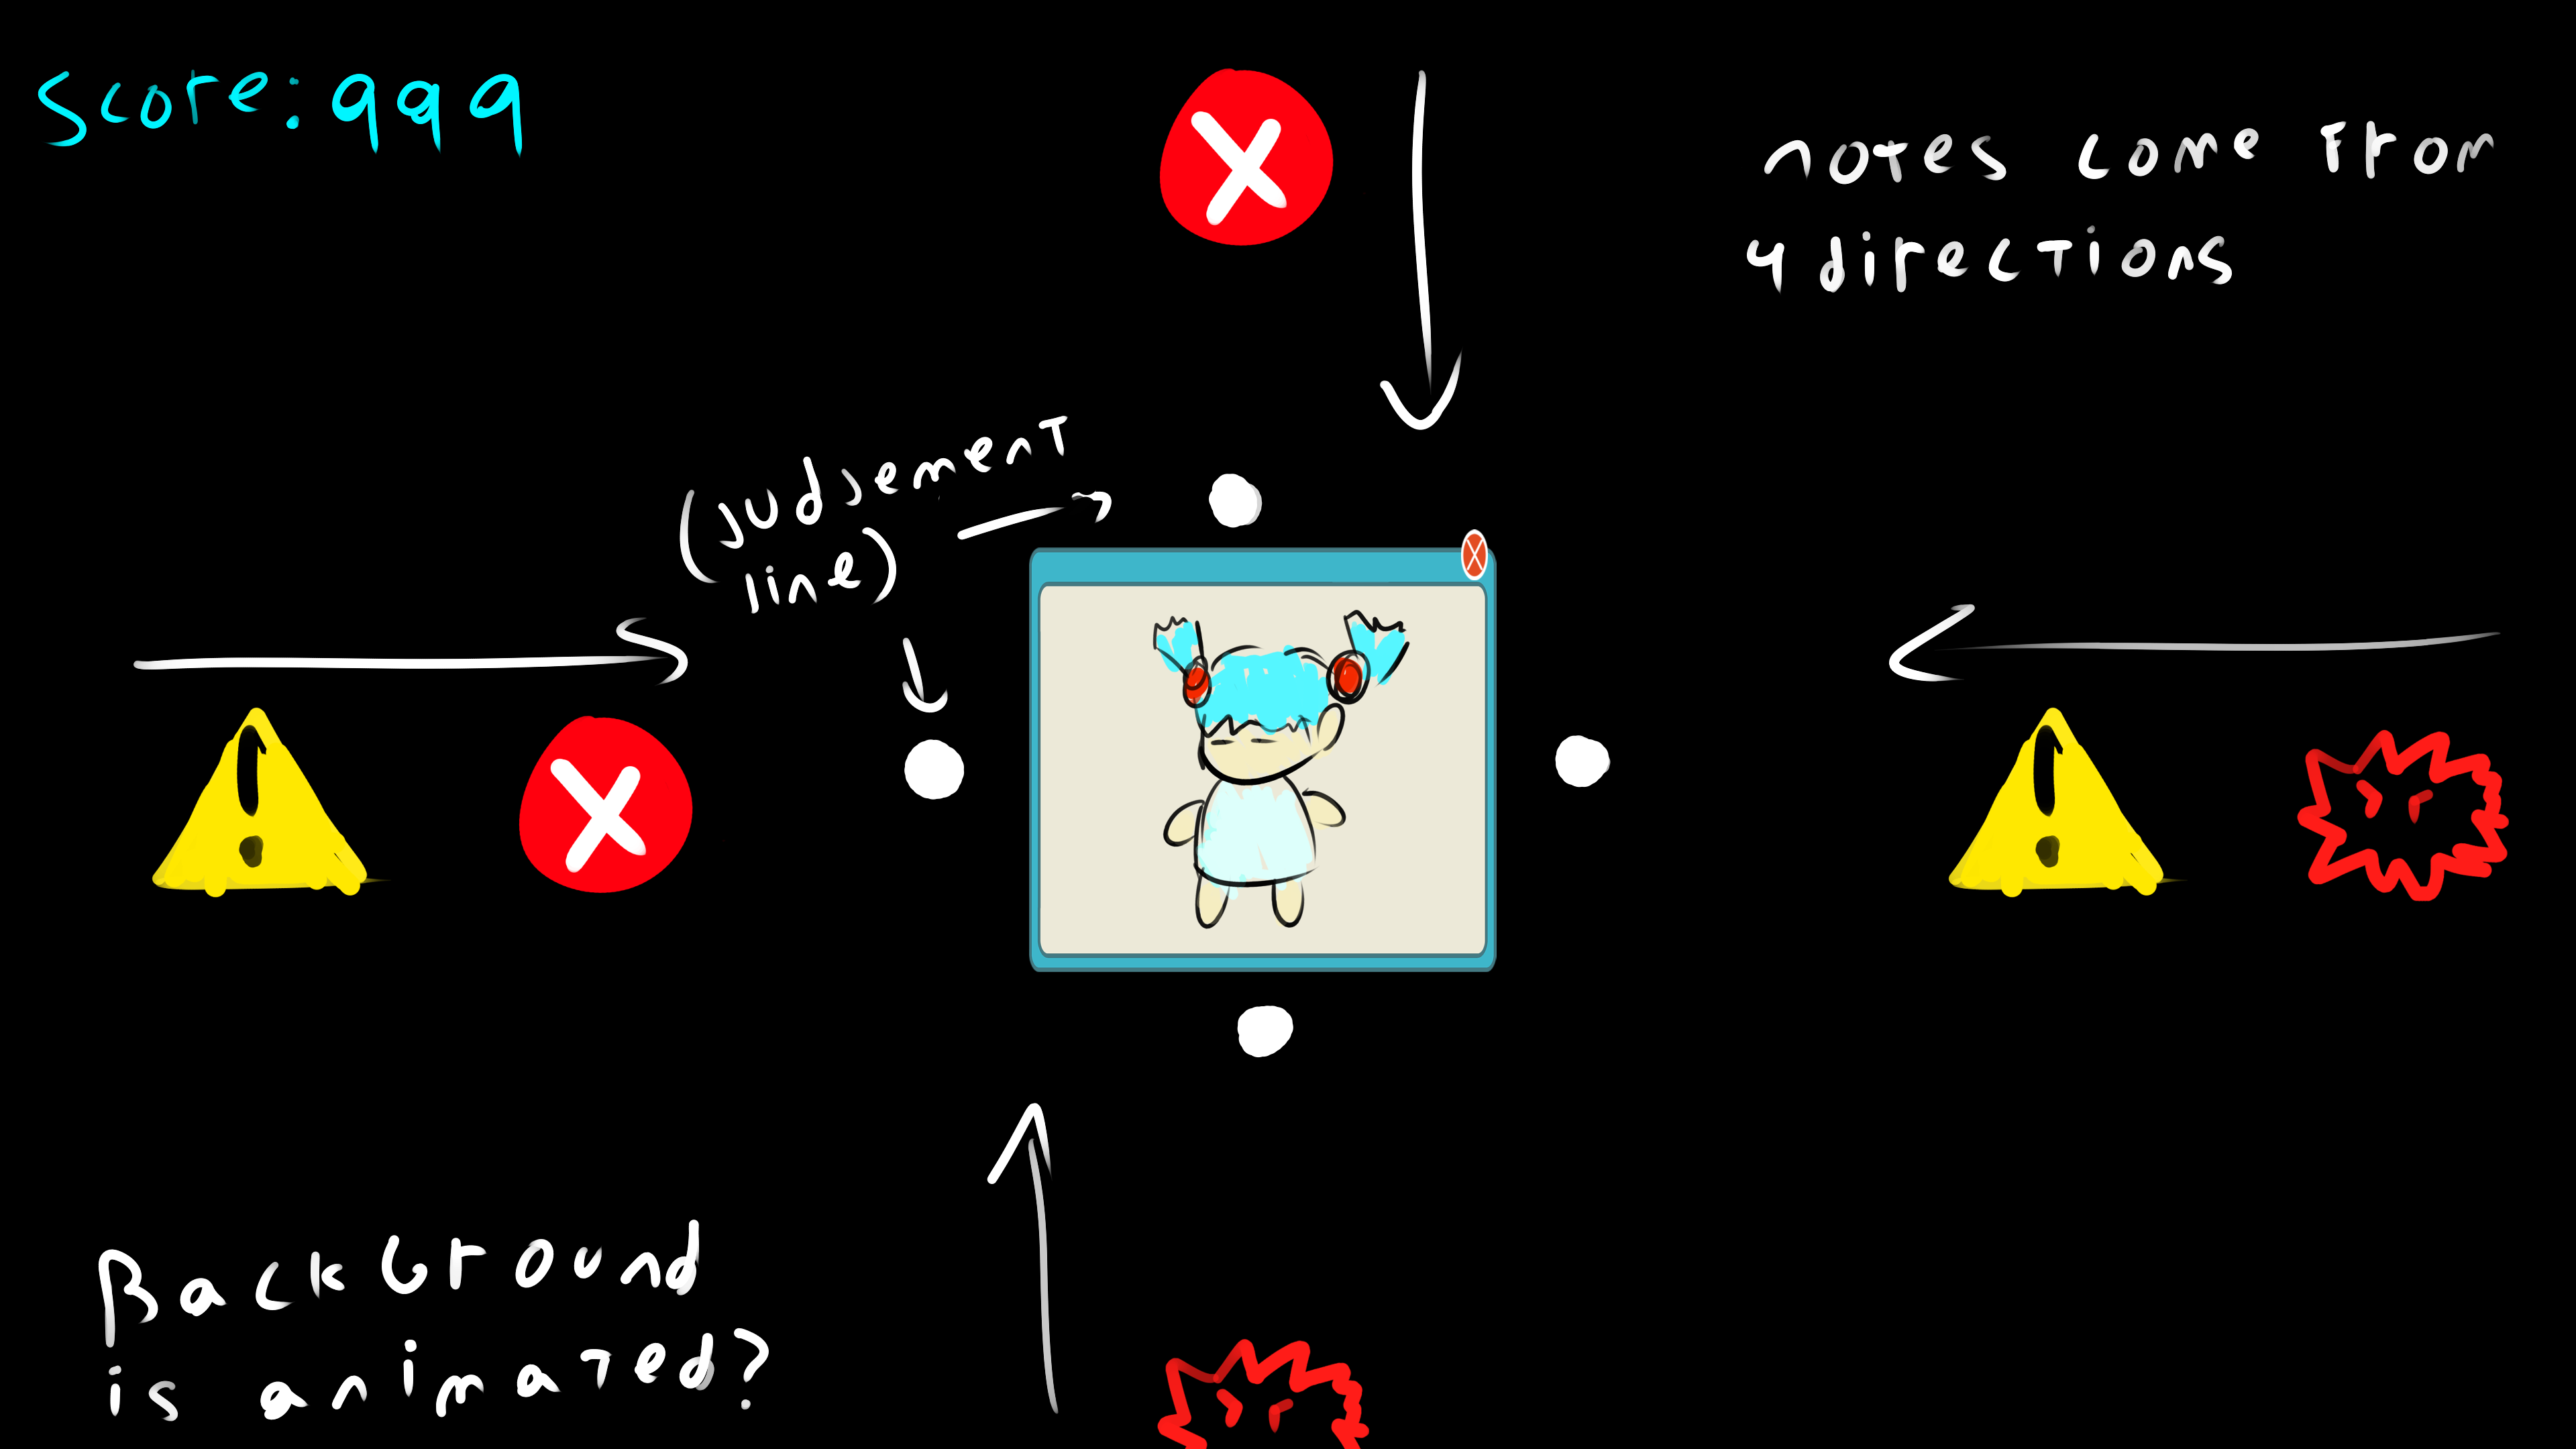 Score: 999
notes come from
4 directions
(judgement
line)
Background
is animated?